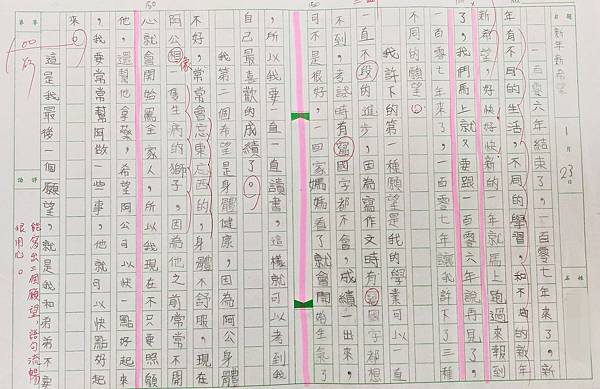 日期
1月
23日
新年新希望
一百零六年結束了，一百零七年來了，新
年有不同的生活，不同的學習，和不同的新年
新希望，好快好快新的一年就馬上跑過來報到
了，我們馬上就要跟一百零六年說再見了，
一百零七年來了，一百零七年讓我許下了三種
不同的願望。
我許下的第一種願望是我的學業可以一直
一直不段的進步，因為寫作文時有
國字都想
不到，考試時有寫國字都不會，成績一出來，
可不是很好，一回家媽媽看了就會開始生氣了
，所以我要一直一直讀書，這樣就可以考到我
自己最喜歡的成績了。
我第二個希望是身體健康，因為阿公身體
不好，常常會忘東忘西的，身體不舒服，現在
阿公像一隻生病的獅子，因為他之前常常不開
心就會開始罵全家人，所以我現在不只要照顧
他，還幫他拿藥，希望阿公可以快一點好起來
，我要常常幫阿做一些事，他就可以快點好起
來。
這是我最後一個願望，就是我和弟弟不要
評語
能寫出三個願望，語句流暢
很用心。